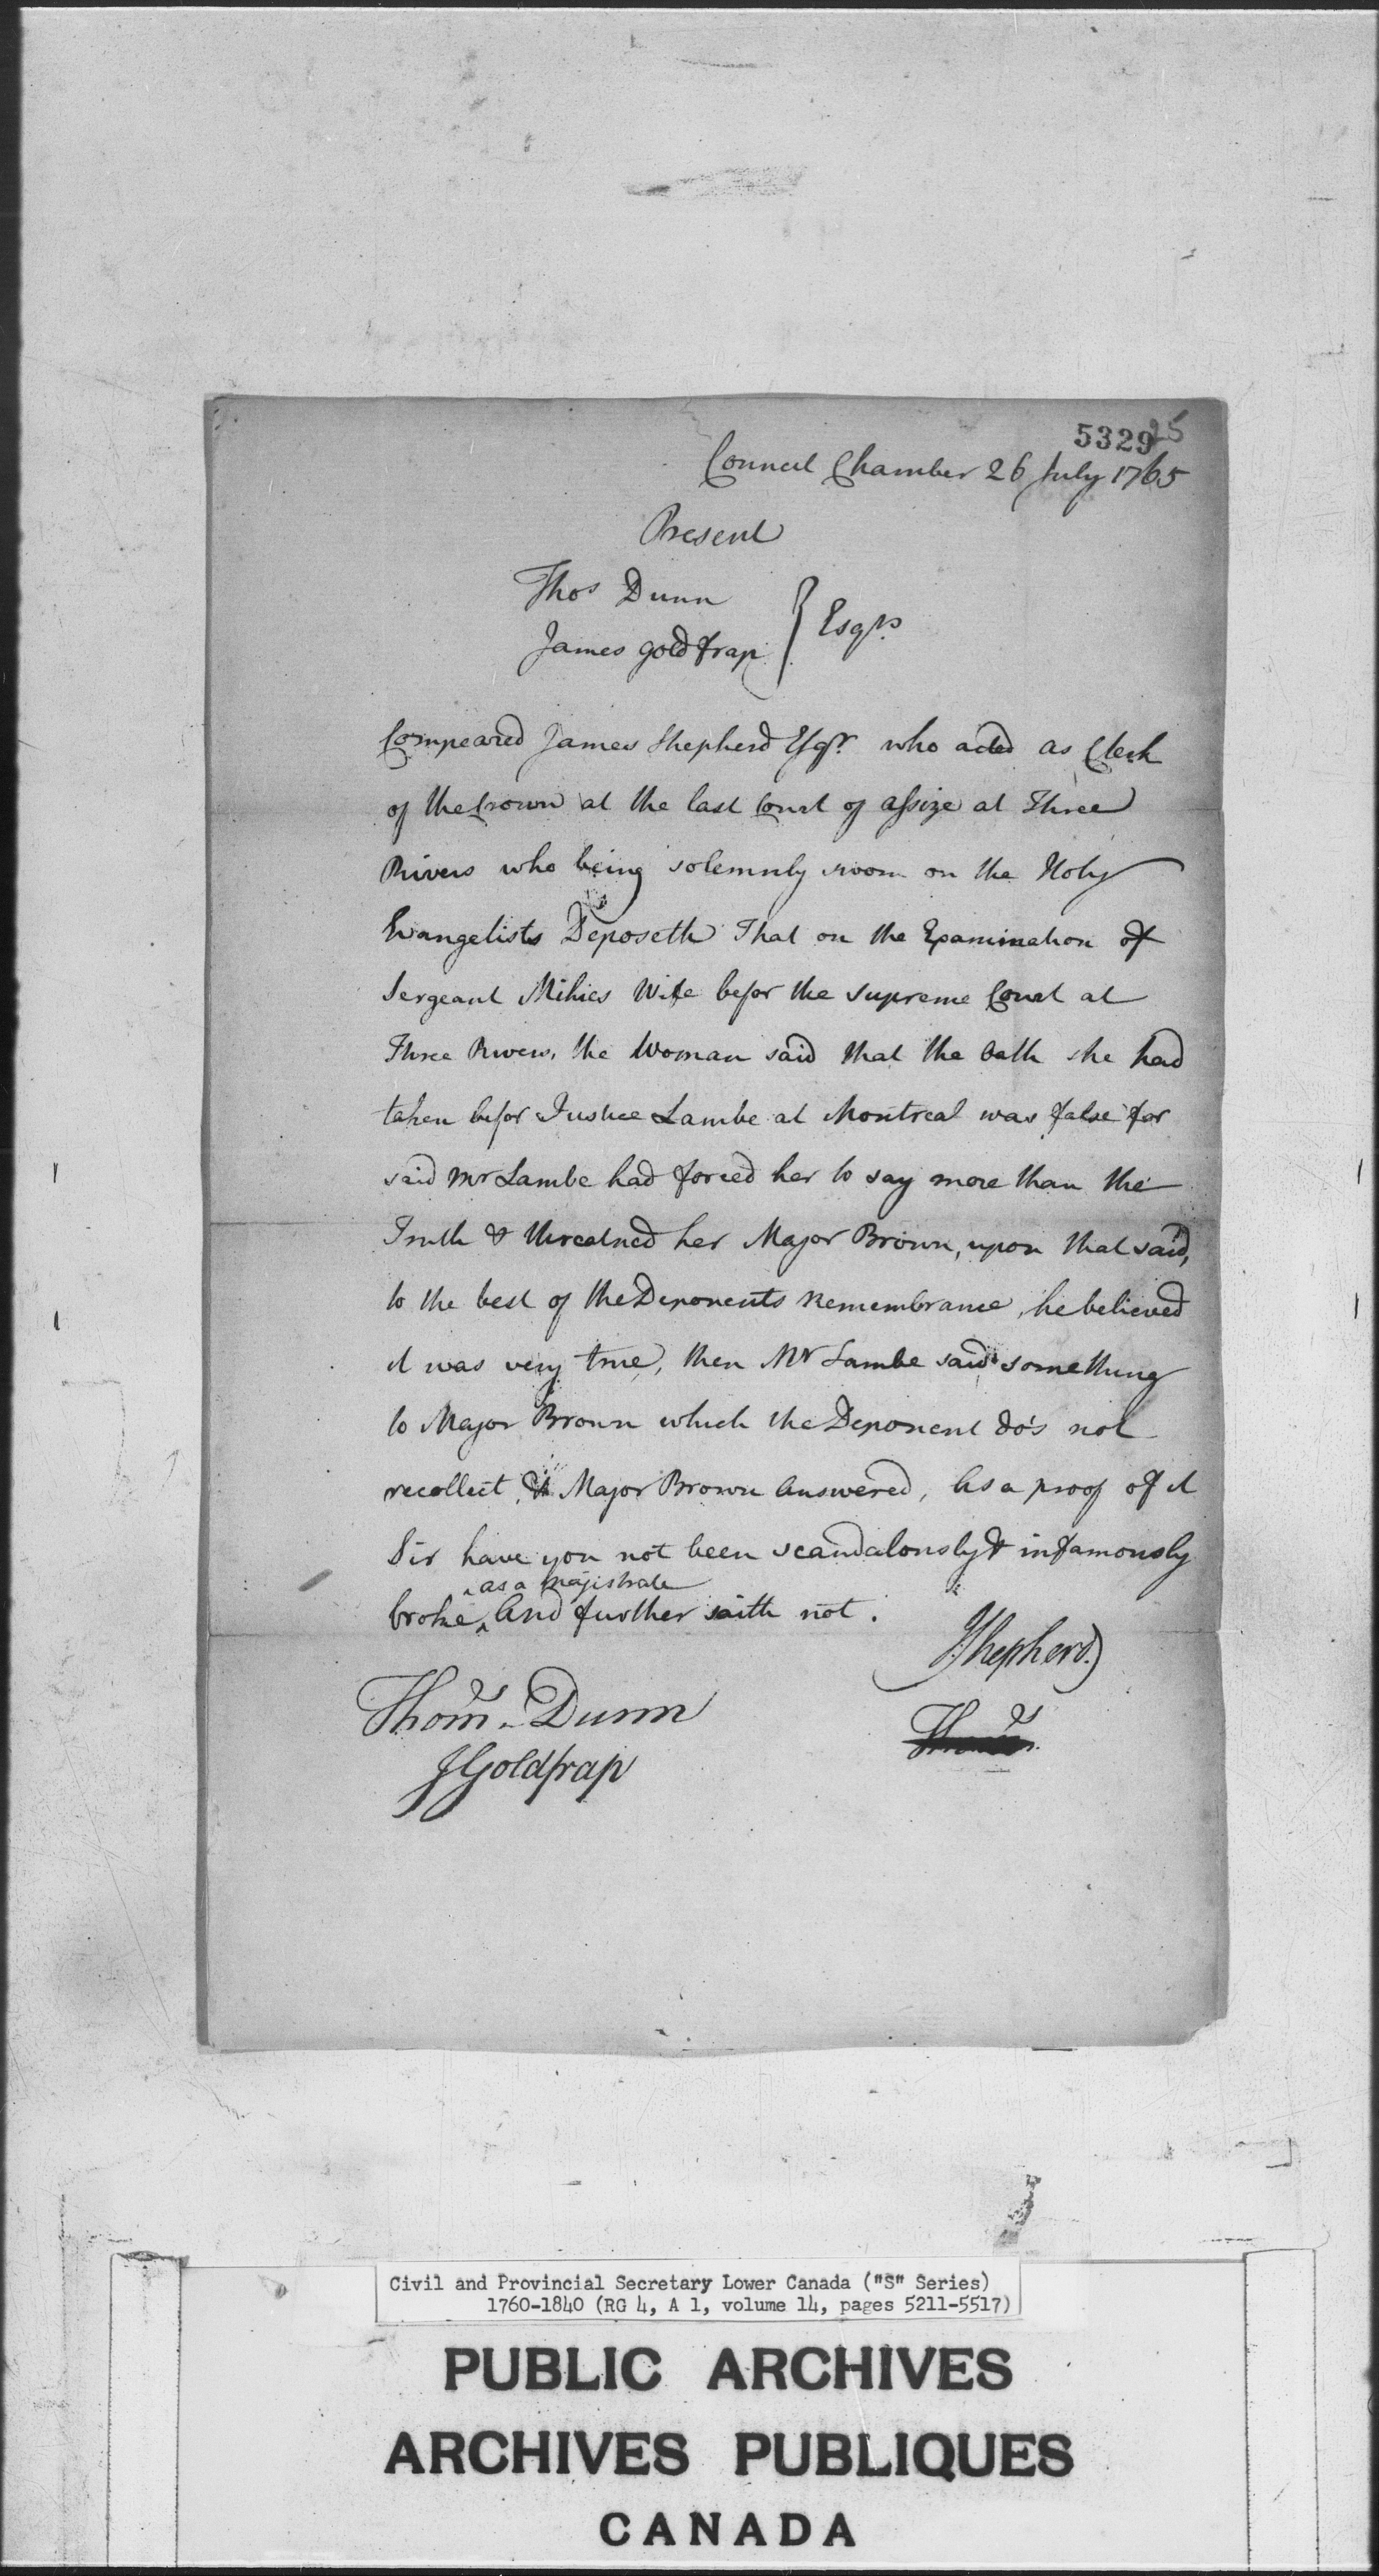 5329
25
Council Chamber 26 July 1765
Present
Thos Dunn
James goldfrap } Esqrs
Compeared James Shepherd Esqr. who acted as Clerk
of the Crown at the last Court of assize at Three
Rivers who being solemnly sworn on the Holy
Evangelists Deposeth That on the Examination of
Sergeant Mihies Wife befor the supreme Court at
Three Rivers, the Woman said that the oath she had
taken befor Justice Lambe at Montreal was false for
said Mr Lambe had forced her to say more than the
Truth & threatned her Major Brown, upon that said,
to the best of the Deponents Remembrance, he believed
it was very true, then Mr Lambe said something
to Major Brown which the Deponent do's not
recollect, & Major Brown answered, as a proof of it
Sir have you not been scandalously & infamously
as a Majistrate
broke, And further saith not.
JShepherd
Thoms. Dunn
Thoms.
JGoldfrap
Civil and Provincial Secretary Lower Canada ("S" Series)
1760-1840 (RG 4, A 1, volume 14, pages 5211-5517)
PUBLIC ARCHIVES
ARCHIVES PUBLIQUES
CANADA